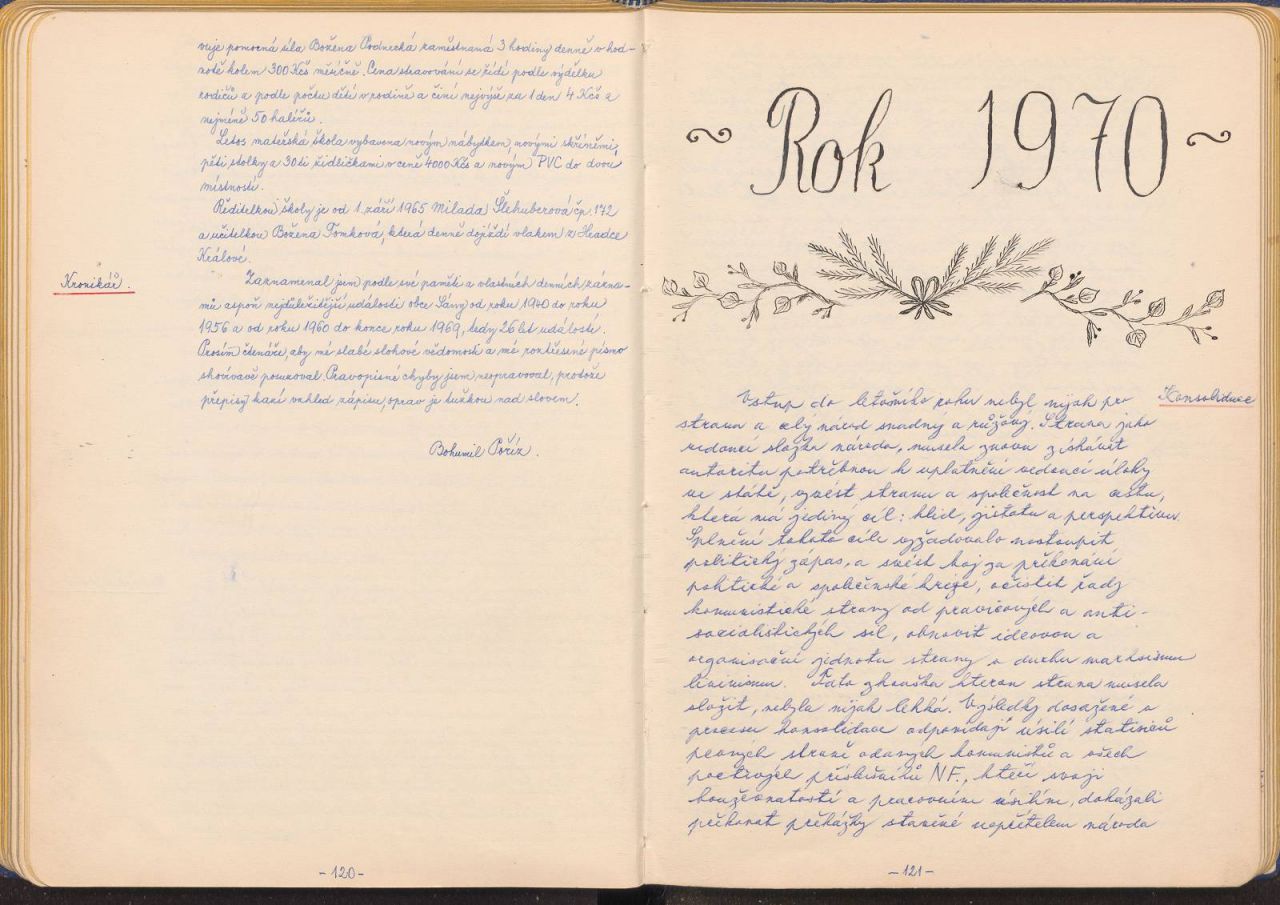 vuje pomocná síla Božena Podnecká zaměstnaná 3 hodiny denně v hod-
notě kolem 300 Kčs měsíčně. Cena stravování se řídí podle výdělku
rodičů a podle počtu dětí v rodině a činí nejvýše za 1 den 4 Kčs a
nejméně 50 haléřů.
Letos mateřská škola vybavena novým nábytkem, novými skříněmi,
pěti stolky a 30ti židličkami v ceně 4000 Kčs a novým PVC do dvou
místností.
Ředitelkou školy je od 1. září 1965 Milada Šlehuberová čp. 172
a učitelkou Božena Tomková, která denně dojíždí vlakem z Hradce
Králové.
Kronikář.
Zaznamenal jsem podle své paměti a vlastních denních zázna-
mů aspoň nejdůležitější události obce Sány od roku 1940 do roku
1956 a od roku 1960 do konce roku 1969, tedy 26 let událostí.
Prosím čtenáře, aby mé slabé slohové vědomosti a mé roztřesené písmo
shovívavě posuzoval. Pravopisné chyby jsem neopravoval, protože
přepisy kazí vzhled zápisu, oprav je tužkou nad slovem.
Bohumil Poříz.
-120-
~ Rok 1970 ~
Konsolidace
Vstup do letošního roku nebyl nijak pro
stranu a celý národ snadný a růžový. Strana jako
vedoucí složka národa, musela znovu získávat
autoritu potřebnou k uplatnění vedoucí úlohy
ve státě, vyvést stranu a společnost na cestu,
která má jediný cíl: klid, jistotu a perspektivu.
Splnění tohoto cíle vyžadovalo nastoupit
politický zápas, a svést boj za překonání
politické a společenské krize, očistit řady
komunistické strany od pravicových a anti-
socialistických sil, obnovit ideovou a
organisační jednotu strany v duchu marksismu
leninismu. Tato zkouška kterou strana musela
složit, nebyla nijak lehká. Výsledky dosažené v
procesu konsolidace odpovídají úsilí statisíců
pevných straně oddaných komunistů a všech
poctivých příslušníků NF., kteří svojí
houževnatostí a pracovním úsilím, dokázali
překonat překážky stavěné nepřítelem národa
-121-